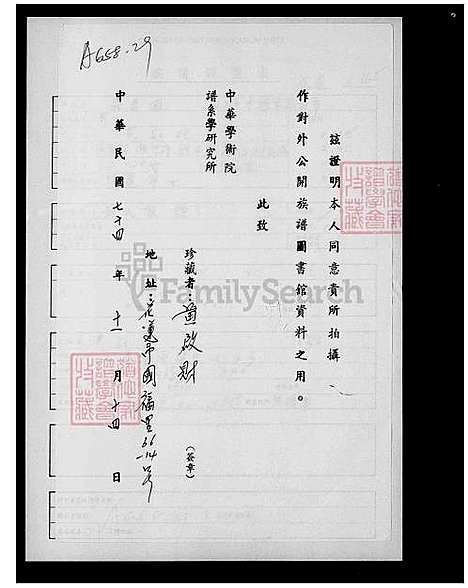 A658-29
茲證明本人同意貴所拍攝
作對外公開族譜圖書館資料之用。
此致
中華學術院
譜系學研究所
珍藏者：黃啟財（簽章）
地址：花蓮市國福里66-14号
中華民國七十四年十一月十四日
FamilySearch